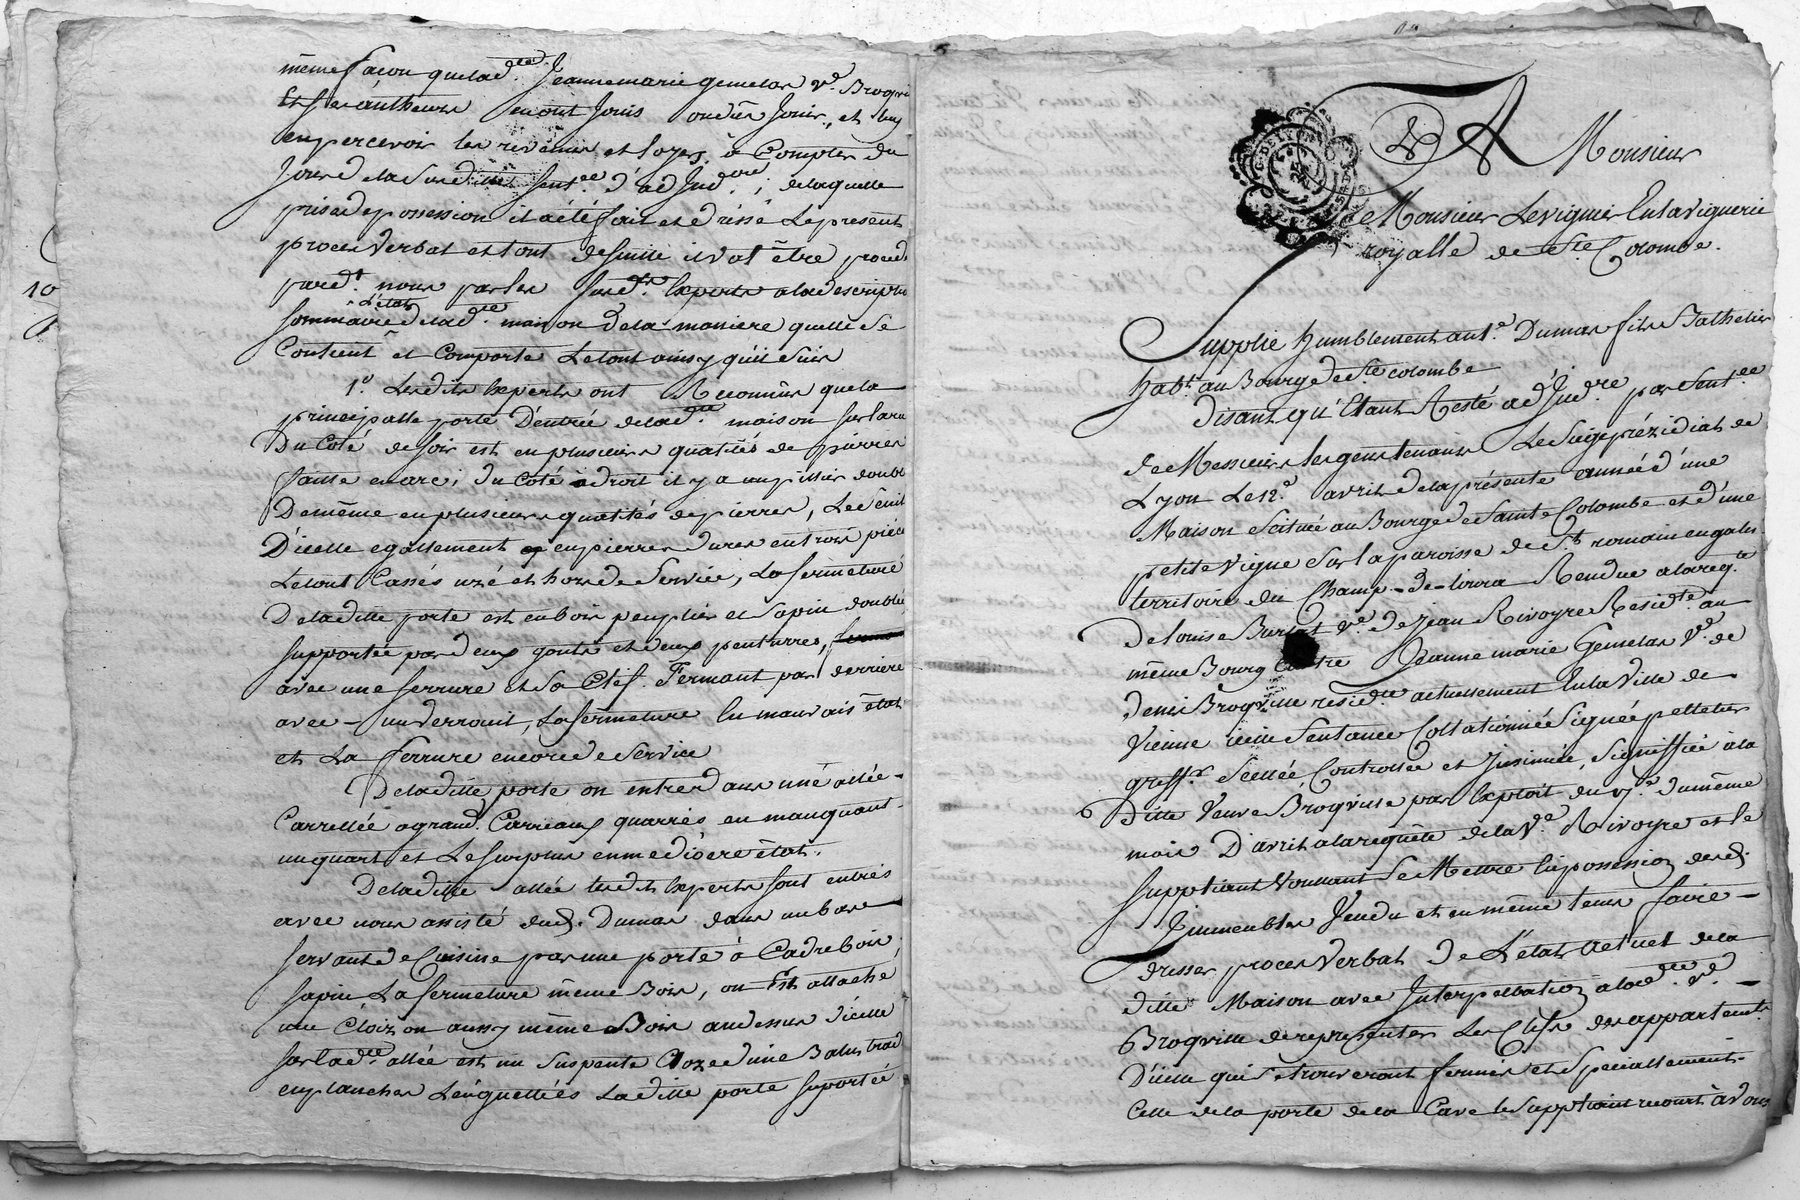 même façon que lad.te Jeanne marie gemelas v.e Broqvi
Et ses autheurs en ont Jouis ou dû Jouir, et luy
en percevoir les revenus et loyers à Compter du
Jour de la Susditte Sent.ce d'adJud.on, de laquelle
prise de possession il a été fait et dréssé Le present
procès verbal et tout de suitte il vat être procédé
par d.t nous par les Susd.ts Experts a la description
Sommaire L'état de lad.te maison de la maniere quelle Se
Contient et Comporte Le tout ainsy qu'il Suis
1.o Lesdits Experts ont Reconnûs que la
principalle porte D'entrée de lad.te maison sur la rue
Du Coté de soir est en plusieurs quatités de pierres
fainte en arc; du Coté adroit il y a un pillier double
De même en plusieurs quatités de pierres, Le Seuil
D'icelle egallement en pierres dures en trois pièces
Le tout Cassés uzé et hors de Service, La fermeture
De laditte porte est en bois peuplier et Sapin double
supportée par deux gonts et deux penturres,
avec une serrure et Sa Clef. Fermant par derriere
avec un verrouil, La fermeture En mauvais état
et La ferrure encore de Service
De laditte porte on entre dans une allée
Carrellée a grand Carreaux quarrés en manquant
un quart et Le Surplus en mediocre état.
De laditte allée lesdits Experts sont entrés
avec nous assisté dud. Dumas dans un bas
servant de Cuisine par une porte à Cadre bois
sapin La fermeture même Bois, ou Est attaché
une Cloizon aussy même Bois au dessus d'icelle
sur lad.te allée est un Suspente Cloze d'une Balustrade
en planches Languettées Laditte porte suportée
10
A Monsieur
Monsieur Le viguier En la viguerie
royalle de S.te Colombe.
Supplie humblement ant.e Dumas fils Bathelier
hab.t au Bourg de S.te Colombe
Disant qu'Etant Resté adJud.re par Sent.ce
de Messieurs les gens tenants Le Siege prézidial de
Lyon Le 12.e avril de la présente année d'une
Maison Scituée au Bourg de Sainte Colombe et d'une
petite vigne Sur la paroisse de S.t romain en galin
territoire du Champ-de-loura Rendue a la req.te
De louise Burlat v.e de Jean Rivoyre Resid.te au
même Bourg Contre Jeanne marie Gemelas V.e de
denis Broqville resid.te actuellement En la Ville de
Vienne icelle Sentance Collationnée Signée pelletier
greff.r Scellée, Controllée et Jnsinuée, signiffiée à la
Ditte Veuve Broqville par Exploit du 17.e du même
mois D'avril a la requête de la V.e Rivoyre et le
Suppliant Voullant Se Mettre En possession desd.
Jmmeubles Vendu et en même tems faire
dresser procès Verbal De L'état actuel de la
ditte Maison avec Jnterpellation a lad.te v.e
Broqville de representer Les Clefs des appartements
D'icelle qui Se trouveront fermés et Speciallement
Celle de la porte de la Cave le Suppliant recourt à Vous